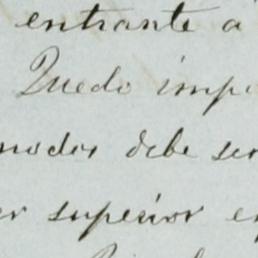 entrante a
Quedo imp
nodos debe ser
er superior e